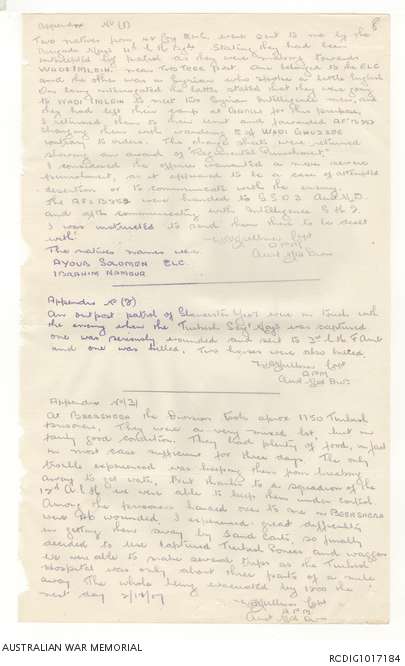 8
Appendix No (1)
Two natives from 45 Coy ELC. were sent to me by the
Brigade Major 4th L.H. Bgde. Stating they had been
intercepted by patrol as they were moving towards
WADI IMLEIH. near TWO TREE post. One belonged to the ELC
and the other was a Syrian who spoke a little English
On being interrogated the latter stated that they were going
to WADI IMLEIH to meet the Syrian Intelligence men, and
they had left their camp at for this purpose,
I returned them to their unit and forwarded AF B 252
charging them with wandering E of WADI GHUZZEE
contrary to orders. The charge sheets were returned
showing an award of "Regimental Punishment".
I considered the offence warranted a more severe
punishment, as it appeared to be a case of attempted
desertion or to communicate with the enemy.
The AF B 252 were handed to G S O 3 Aust M D.
and after communicating with Intelligence G H Q.
I was instructed to send them there to be dealt
with.
The natives names were
AYOUB SOLOMON ELC.
IBRAHIM NAMOUR
Capt
A P M
Aust Mtd Div
Appendix No (2)
An outpost patrol of Gloucester Yeo were in touch with
the enemy when the Turkish was captured
one was seriously wounded and sent to 3rd L H F Amb
and one was killed. Two horses were also killed.
Capt
A.P.M
Aust Mtd Div
Appendix No (3)
At BEERSHEBA the Division took approx 1150 Turkish
prisoners. They were a very mixed lot, but in
fairly good condition. They had plenty of food, in fact
in most cases sufficient for three days. The only
trouble experienced was keeping them from breaking
away to get water. But thanks to a squadron of the
12th A L H we were able to keep them under control.
Among the prisoners handed over to me in BEERSHEBA
were wounded. I experienced great difficulty
in getting them away by Sand Carts, so finally
decided to use captured Turkish Ponies and waggons
we were able to make several trips as the Turkish
Hospital was only about three parts of a mile
away. The whole being evacuated by 1800 the
next day
Capt
A.P.M
Aust Mtd Div
AUSTRALIAN WAR MEMORIAL
RCDIG1017184